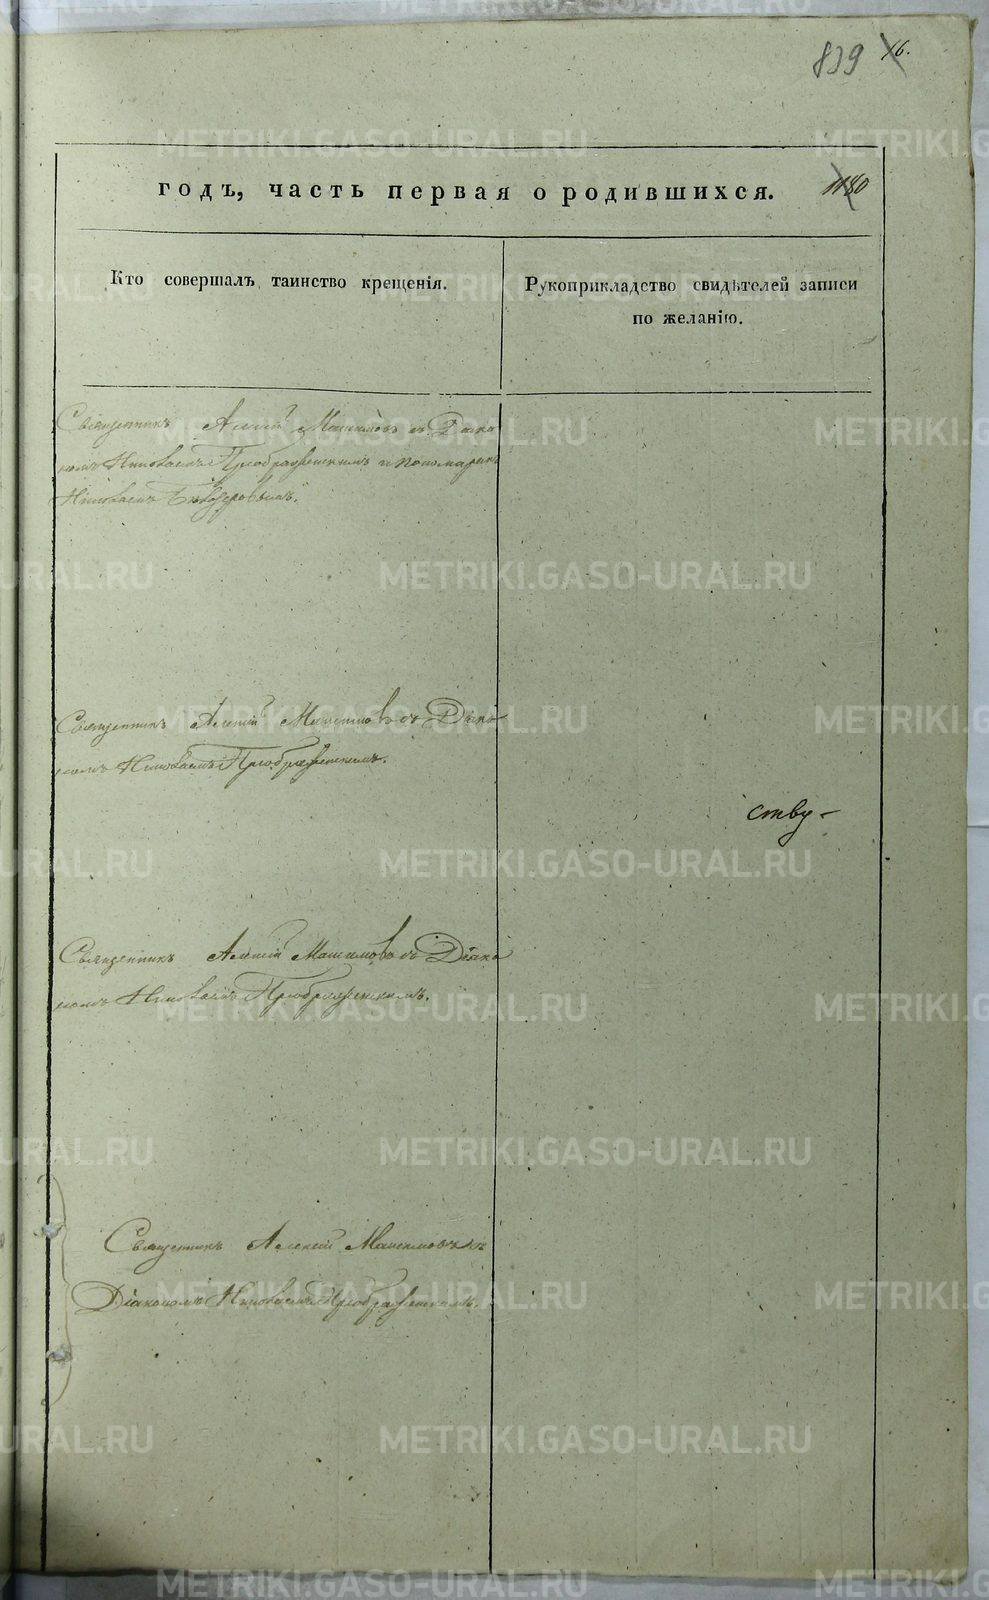 839 16.
годъ, часть первая о родившихся. 1180
Кто совершалъ таинство крещенія.
Рукоприкладство свидѣтелей записи
по желанію.
Священникъ Алексій Максимовъ съ Діако
номъ Николаемъ Преображенскимъ и пономаремъ
Николаемъ
Священникъ Алексій Максимовъ съ Діако
номъ Николаемъ Преображенскимъ.
ству-
Священникъ Алексій Максимовъ съ Діако
номъ Николаемъ Преображенскимъ.
Священникъ Алексій Максимовъ съ
Діакономъ Николаемъ Преображенскимъ.
METRIKI.GASO-URAL.RU